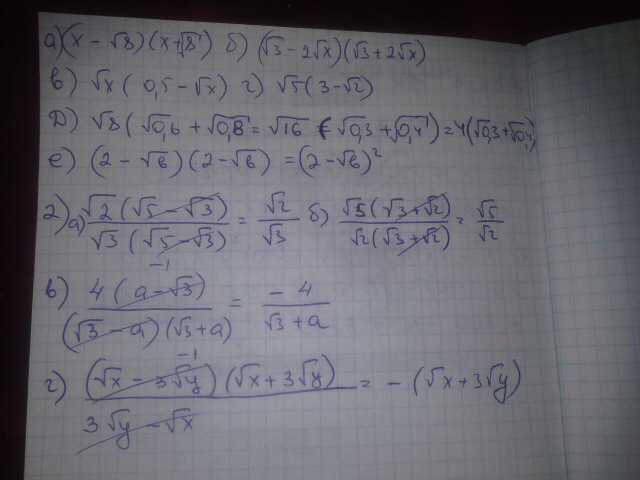 а) (x − √8)(x + √8) б) (√3 − 2√x)(√3 + 2√x)
в) √x ( 0,5 − √x) г) √5 (3 − √2)
Д) √8 (√0,6 + √0,8 = √16 (√0,3 + √0,4) = 4(√0,3 + √0,4)
е) (2 − √в)(2 − √в) = (2 − √в)²
2) а) √2 (√5 − √3) / √3 (√5 − √3) = √2 / √3 б) √5 (√3 + √2) / √2 (√3 + √2) = √5 / √2
в) 4 (a − √3) −1 / (√3 − a)(√3 + a) = −4 / √3 + a
г) (√x − 3√y) −1 (√x + 3√y) / 3√y − √x = − (√x + 3√y)